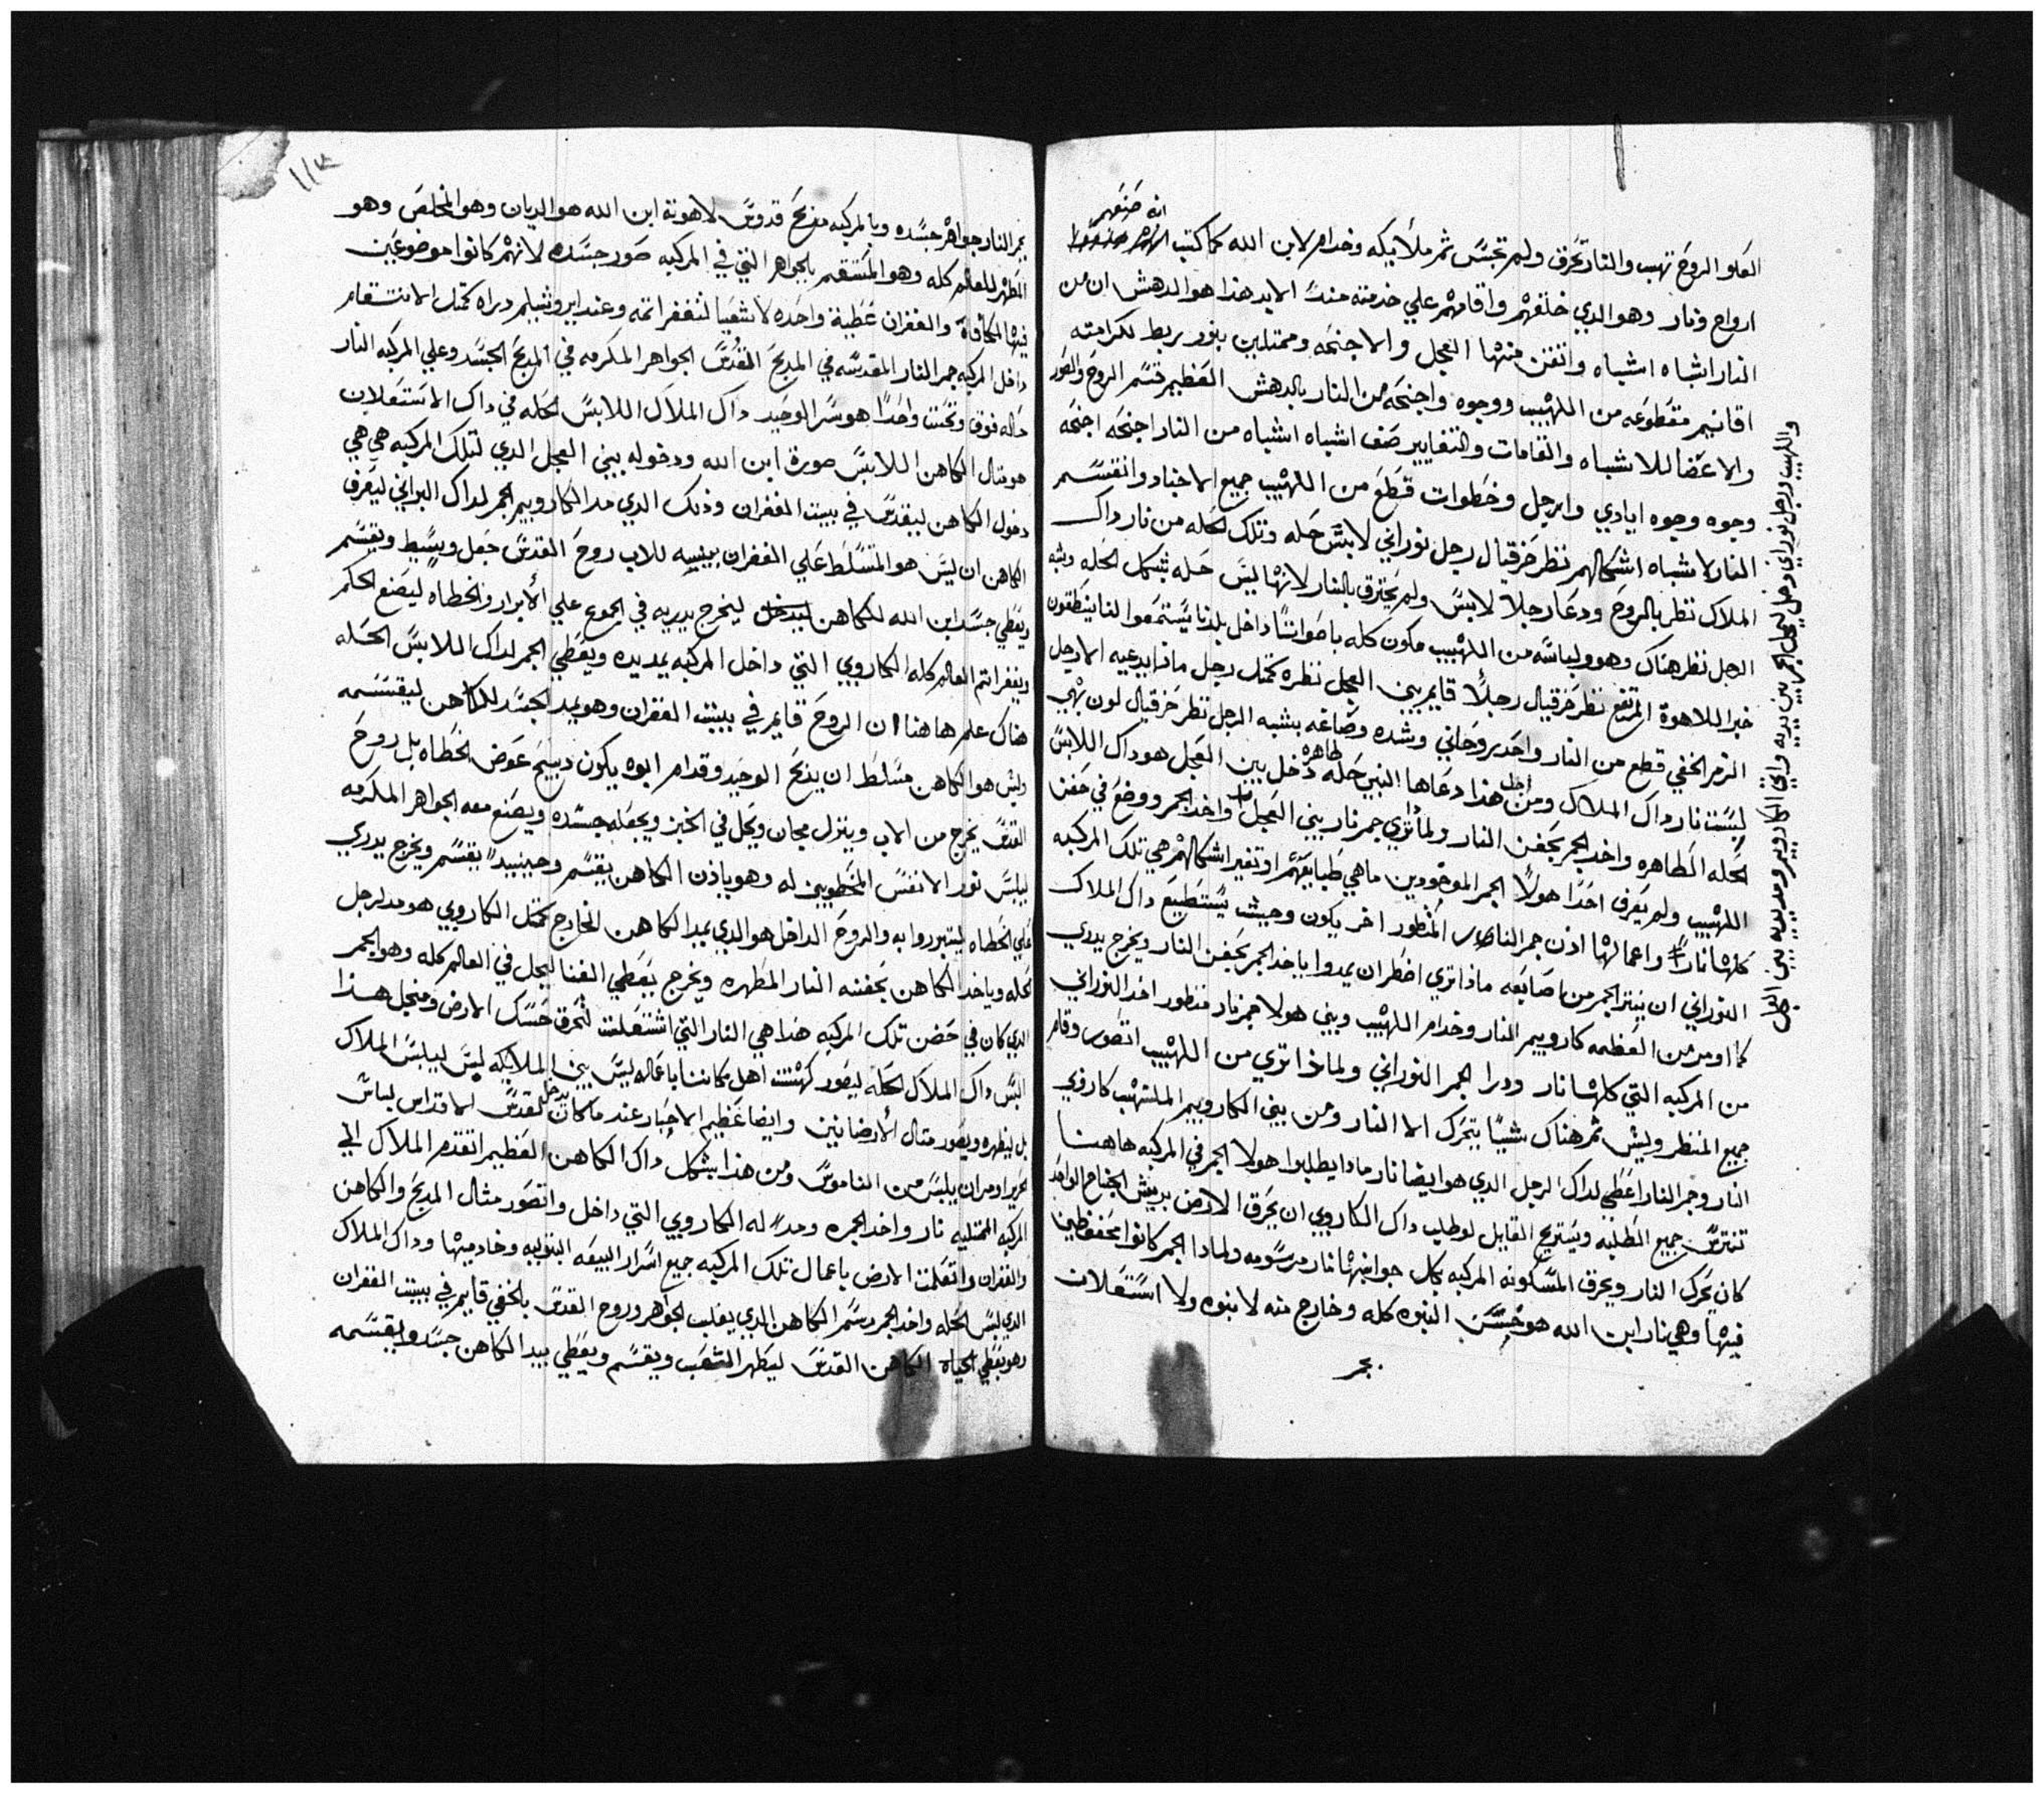 انه صنعهم
العلو الروح تهب والنار تحرق ولم تجسس ثم ملأيكه وخدام لابن الله كما كتب
ارواح ونار وهو الدي خلقهم واقامهم علي خدمته منذ الابد هذا هو الدهش ان من
النار اشباه اشباه واتقن منها العجل والاجنحه وممتلين بنور يربط لكرامته
اقانيم مقطوعه من اللهيب ووجوه واجنحه من النار بالدهش العظيم قسم الروح والصور
والاعضا للاشباه والقامات والتغايير صنف اشباه اشباه من النار اجنحه اجنحه
وجوه وجوه ايادي وارجل وخطوات قطع من اللهيب جميع الاجناد وانقسم
النار لاشباه اشكالهم نظر حزقيال رجل نوراني لابس حله وتلك الحله من نار داك
الملاك نظر بالروح ودعا رجلا لابس ولم يحترق بالنار لانها ليس حله بشكل الحله وشبه
الرجل نظر هناك وهو ولباسه من اللهيب مكون كله باصواتنا داخل بلدنا يستمعوا لنا ينطقون
خبر اللاهوة المرتفع نظر حزقيال رجلاً قايم بين العجل نظره كمثل رجل ماذا يدعيه الا رجل
الرمز الخفي قطع من النار واحد روحاني وشده وصاغه بشبه الرجل نظر حزقيال لون بهي
ليست نار داك الملاك ومن اجل هذا دعاها النبي حله طاهره دخل بين العجل هو داك اللابس
الحله الطاهره واخد الجمر بحفن النار ولما تري جمر نار بين العجل واخد الجمر ووضع في حفن
اللهيب ولم يعرف احدا هولا الجمر الموجودين ما هي طبايعهم او تغير اشكالهم هي تلك المركبه
كلها نارا واعمالها اذن جمر النار المنظور اخر يكون وحيث يستطيع داك الملاك
النوراني ان ينتر الجمر من اصابعه ماذا تري اضطر ان يمدوا ياخد الجمر بحفن النار ويخرج يدري
كما اومر من العظمه كاروبيم النار وخدام اللهيب وبين هولا جمر نار منظور اخد النوراني
من المركبه التي كلها نار ودرا الجمر النوراني ولماذا تري من اللهيب اتصور وقام
جميع المنظر وليش ثم هناك شيا يتحرك الا النار ومن بين الكاروبيم الملتهب كاروبي
النار وجمر النار اعطي لداك الرجل الدي هو ايضا نار مادا يطلبوا هولا الجمر في المركبه هاهنا
تفترس جميع الطلبه ويستريح القايل لو طلب داك الكاروبي ان يحرق الارض بريش الجناح الواحد
كان يحرك النار ويحرق المسكونه المركبه بكل جوانبها نار مرسومه ولمادا الجمر كانوا محتفظين
فيها وهي نار ابن الله هو حسن النبوه كله وخارج منه لا بنوه ولا استعلان
بجمر
واللهيب ورجل نوراني دخل ليحمل الجمر بين يديه واتي الكاروبيم ومد يديه بين العجل
١١٧
بجمر النار جواهر جسده وبالمركبه مذبح قدوس لاهوته ابن الله هو الديان وهو المخلص وهو
المطهر للعالم كله وهو المنتقم بالجواهر التي في المركبه صور جسده لانهم كانوا موضوعين
فيها المكافاة والغفران عطية واحده لاشعيا لتغفر اتمه وعند ايروشليم دراه كمثل الانتقام
داخل المركبه جمر النار المقدسه في المدبح القدس الجواهر المكرمه في المدبح الجسد وعلي المركبه النار
حاله فوق وتحت واحدا هو سر الوحيد داك الملاك اللابس الحله في داك الاستعلان
هو متال الكاهن اللابس صورة ابن الله ودخوله بين العجل الدي لتلك المركبه هي هي
دخول الكاهن ليقدس في بيت الغفران وذلك الدي مد الكاروبيم الجمر لداك البراني ليعرف
الكاهن ان ليس هو المتسلط علي الغفران بيبيه للاب روح القدس جعل وسيط ويقسم
ويعطي جسد ابن الله للكاهن ليخرج بيديه في الجموع علي الأبرار والخطاه ليصنع الحكم
ويغفر اتم العالم كله الكاروبي التي داخل المركبه يمد يده ويعطي الجمر لداك اللابس الحله
هناك علم هاهنا ان الروح قايم في بيت الغفران وهو يمد الجسد للكاهن ليقسمه
وليس هو الكاهن مسلط ان يدبح الوحيد وقدام ابوه يكون دبيح عوض الخطاه بل روح
القدس يخرج من الاب وينزل مجان ويحل في الخبز ويجعله جسده ويصنع معه الجواهر المكرمه
ليلبس نور الانفس المخطوبين له وهو ياذن الكاهن يقسم وحينيد يقسم ويخرج يدري
علي الخطاه ليتبرروا به والروح الداخل هو الدي يمد الكاهن الخارج كمثل الكاروبي هو مد لرجل
الحله وياخد الكاهن بحفنه النار المطهره ويخرج يعطي الغنا ليحل في العالم كله وهو الجمر
الدي كان في حضن تلك المركبه هذا هي النار التي اشتعلت لتحرق حسك الارض ومنجل هذا
البس داك الملاك الحله ليصور كهنت اهل مكاننا باعماله ليس بين الملايكه لبس ليلبس الملاك
بل ليظهره ويصور متال الأرضانين وايضا عظيم الاحبار عند ما كان يدخل لقدس الاقداس لباس
الحرير اومر ان يلبس من الناموس ومن هذا بشكل داك الكاهن العظيم اتقدم الملاك الي
المركبه الممتليه نار واخد الجمره ومد له الكاروبي التي داخل واتصور مثال المدبح والكاهن
والغفران واتعلمت الارض باعمال تلك المركبه جميع اسرار البيعه البتوليه وخادميها وداك الملاك
الدي لبس الحله واخد الجمر رسم الكاهن الدي يغلب الجواهر وروح القدس بالخفي قايم في بيت الغفران
وهو يعطي الحياه الكاهن القدس ليطهر الشعب ويقسم ويعطي بيد الكاهن جسد وليقسمه